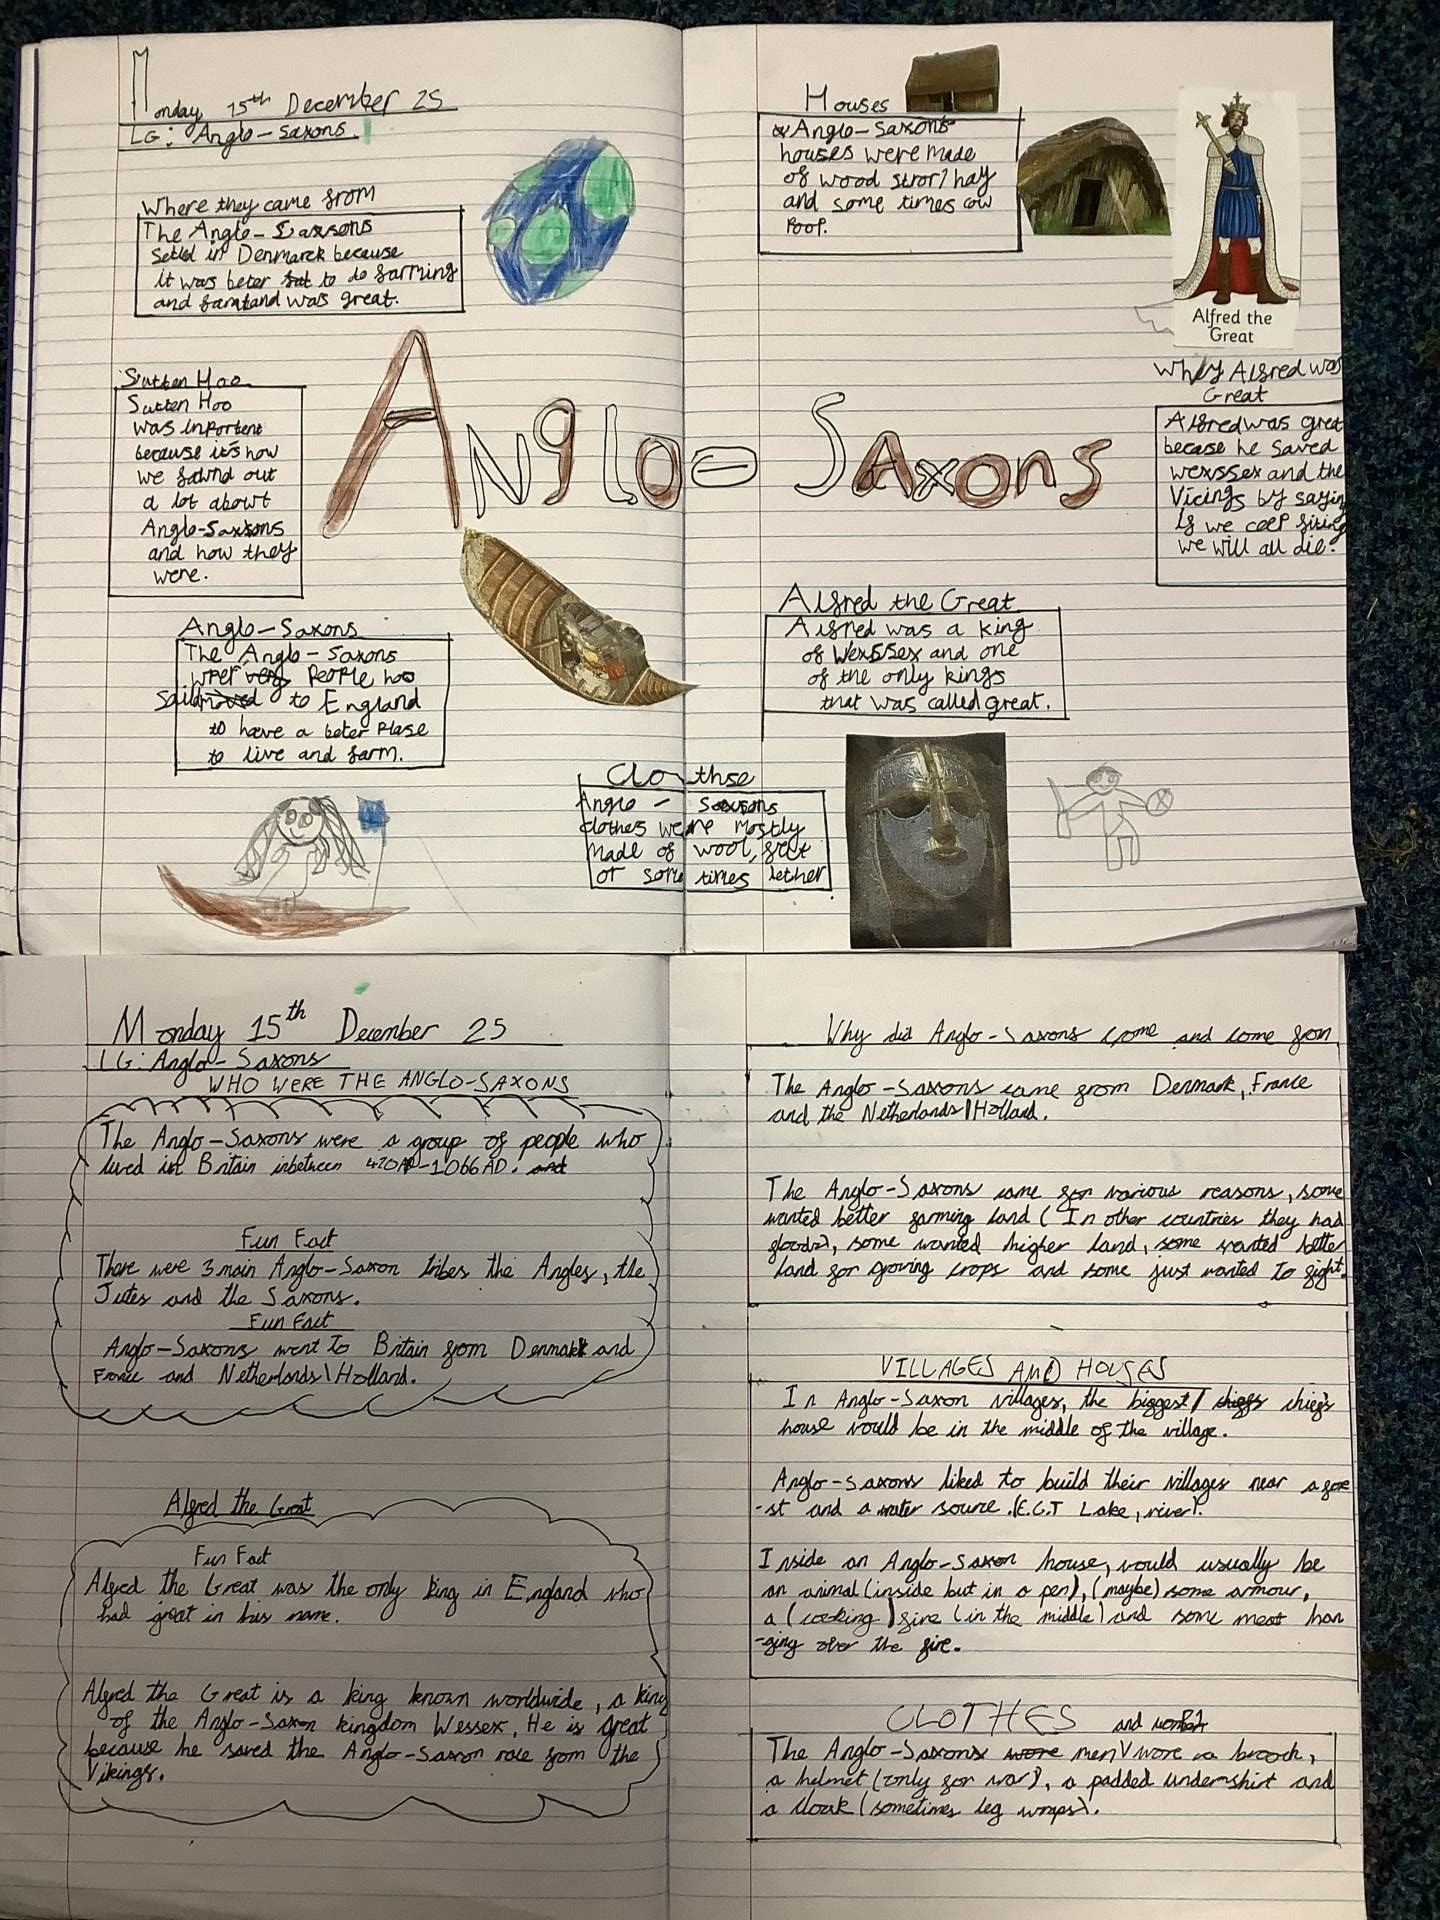 Monday 15th December 25
LG: Anglo-Saxons
Where they came from
The Anglo-Saxsons
in Denmarck because
it was beter to do farming
and was great.
Sutten Hoo
Sutten Hoo
was inportent
because it's how
we found out
a lot about
Anglo-Saxsons
and how they
were.
Anglo-Saxons
The Anglo-Saxons
wrer very People ho
Said moved to England
to have a beter Plase
to live and farm.
Anglo-Saxons
Houses
Anglo-Saxons
houses were made
of wood stror/hay
and some times cow
Poop.
Alfred the
Great
Whey Alfred was
Great
Alfred was great
becase he saved
wexssex and the
Vicings by sayin
If we ceep fiting
we will all die.
Alfred the Great
Alfred was a king
of Wexssex and one
of the only kings
that was called great.
Clothse
Anglo-Saxsons
clothes were mostly
made of wool, felt
or some times lether
Monday 15th December 25
LG: Anglo-Saxons
WHO WERE THE ANGLO-SAXONS
The Anglo-Saxons were a group of people who
lived in Britain inbetween 410AD-1066AD. and
Fun Fact
There were 3 main Anglo-Saxon tribes the Angles, the
Jutes and the Saxons.
Fun Fact
Anglo-Saxons went to Britain from Denmark and
France and Netherlands\Holland.
Alfred the Great
Fun Fact
Alfred the Great was the only king in England who
had great in his name.
Alfred the Great is a king known worldwide, a king
of the Anglo-Saxon kingdom Wessex. He is great
because he saved the Anglo-Saxon race from the
Vikings.
Why did Anglo-Saxons come and come from
The Anglo-Saxons came from Denmark, France
and the Netherlands/Holland.
The Anglo-Saxons came for various reasons, some
wanted better farming land (In other countries they had
floods), some wanted higher land, some wanted better
land for growing crops and some just wanted to fight.
VILLAGES AND HOUSES
In Anglo-Saxon villages, the biggest/ chiefs chief's
house would be in the middle of the village.
Anglo-Saxons liked to build their villages near a fore
-st and a water source. (E.G.T Lake, river).
Inside an Anglo-Saxon house, would usually be
an animal (inside but in a pen), (maybe) some armour,
a (cooking) fire (in the middle) and some meat han
-ging over the fire.
CLOTHES
and women
The Anglo-Saxons wore men\/wore a brooch,
a helmet (only for war), a padded undershirt and
a cloak (sometimes leg wraps).